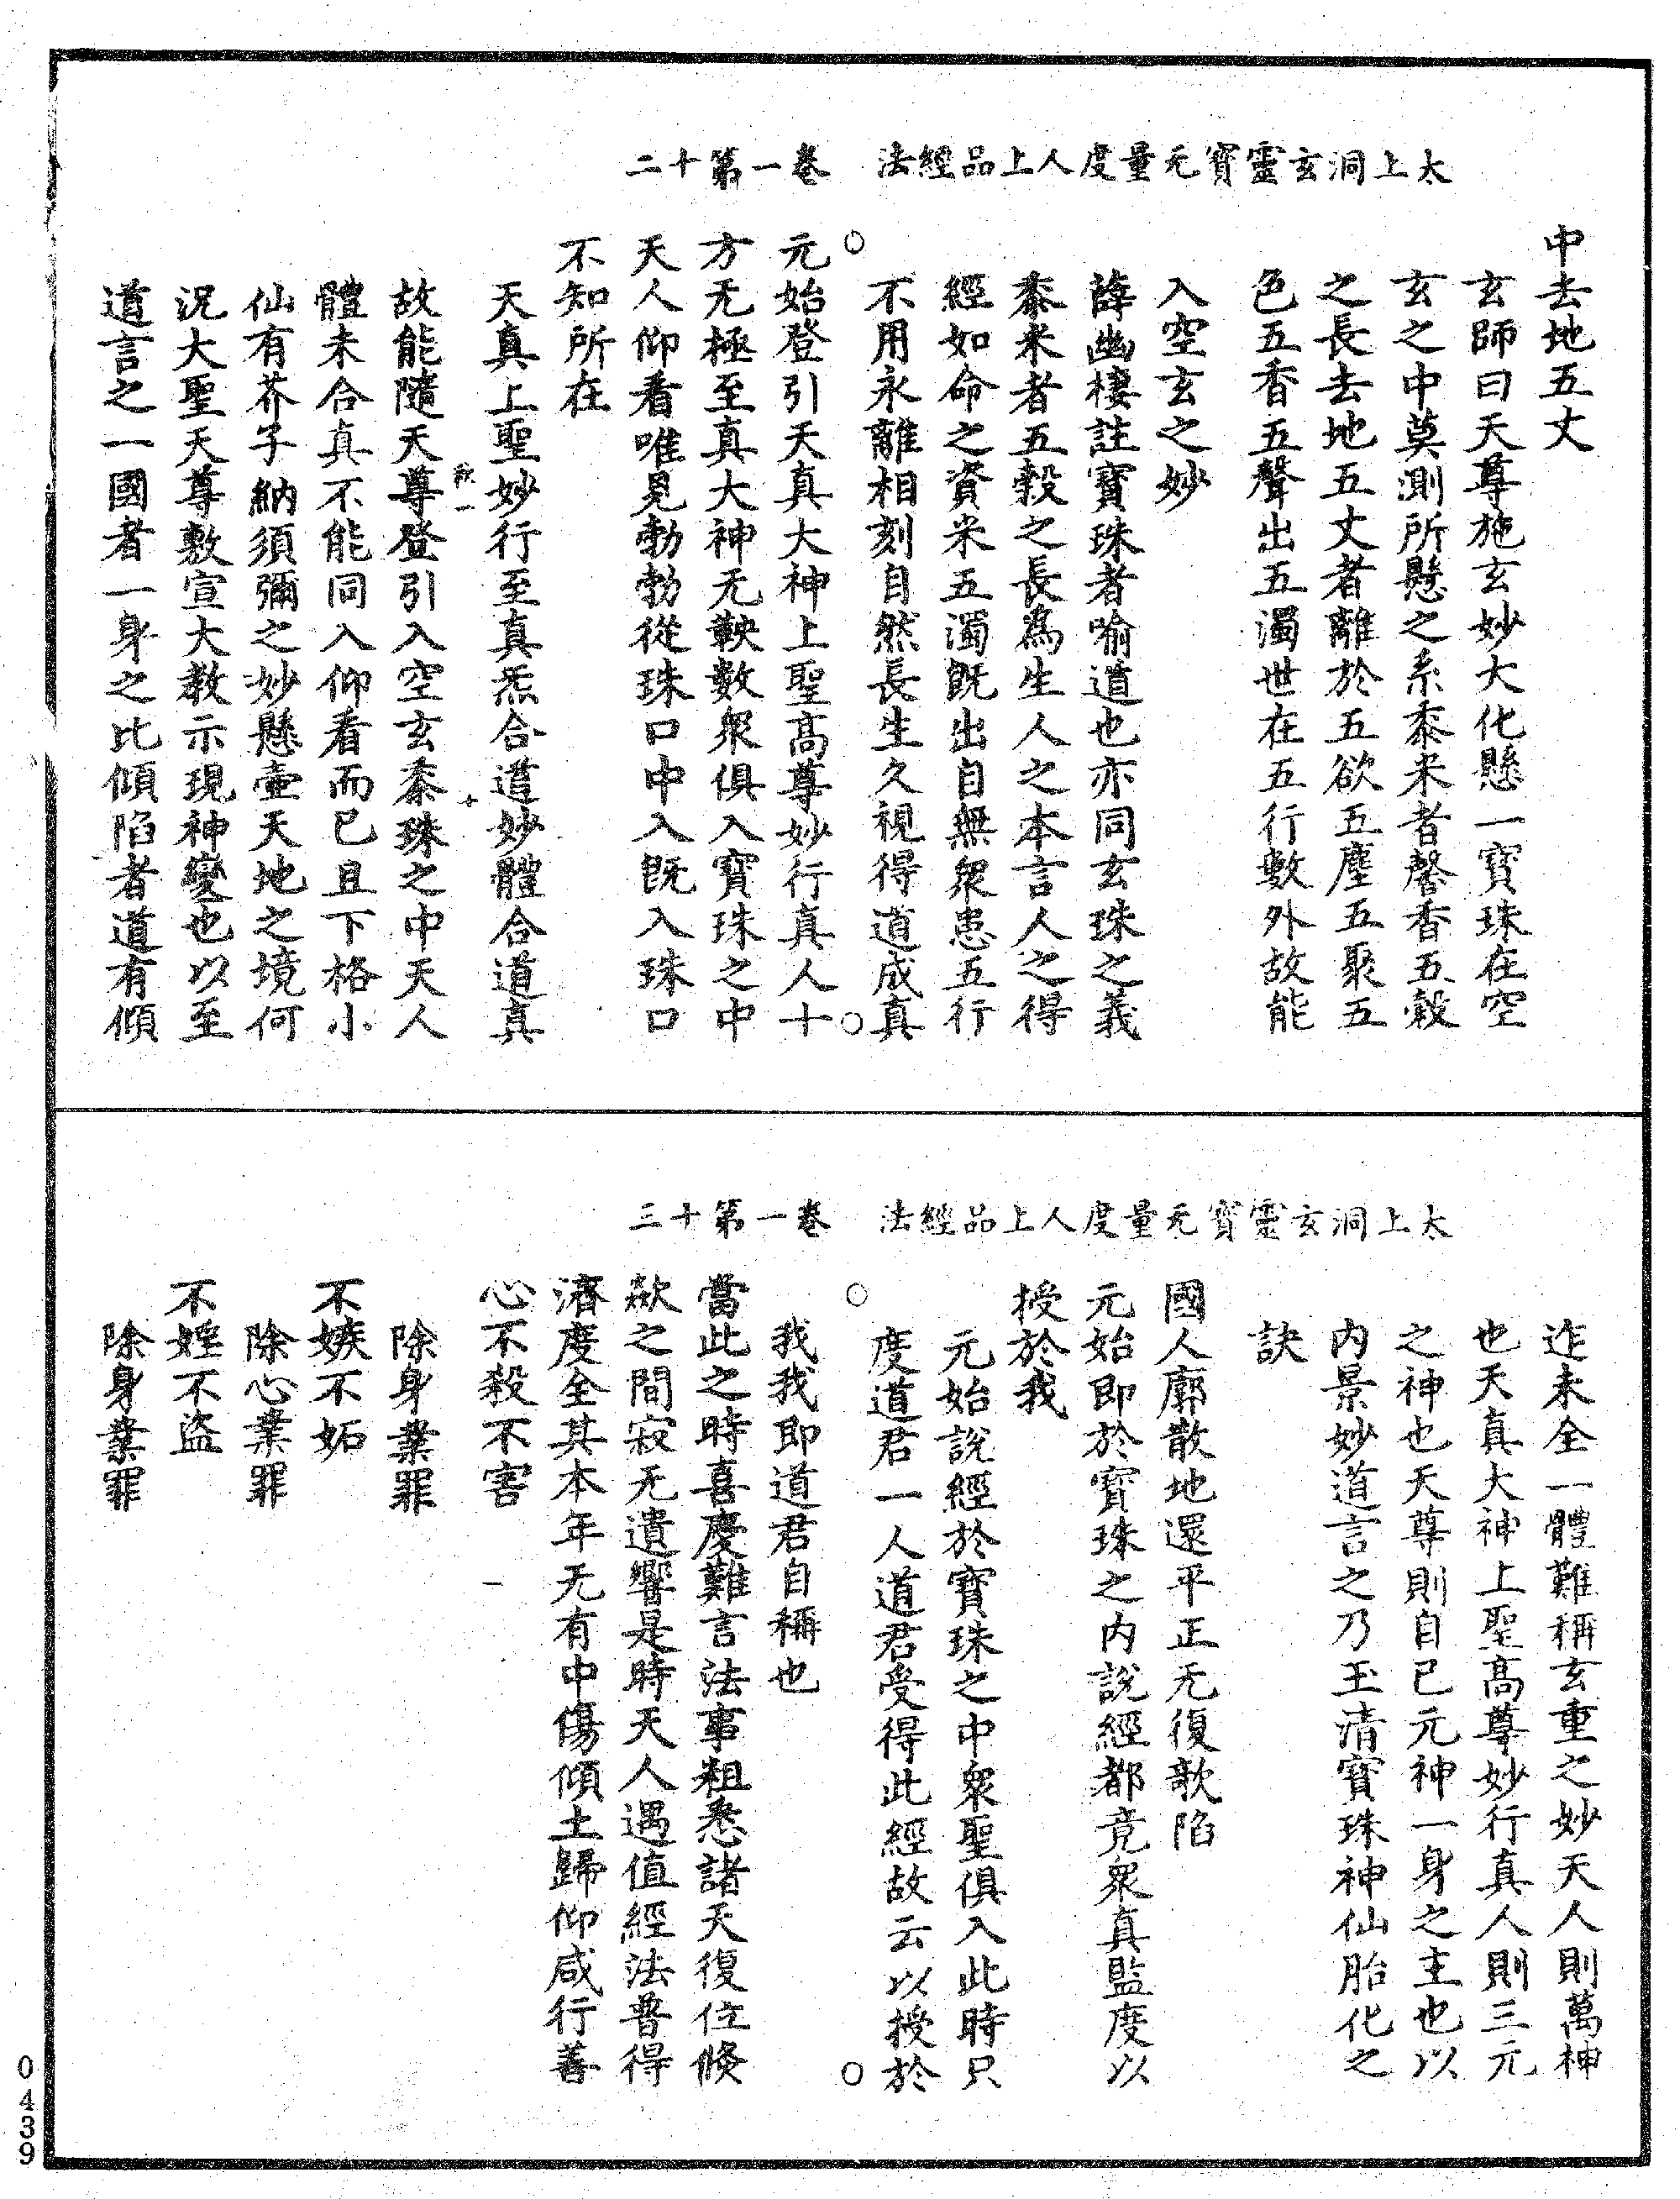 太上洞玄靈寶无量度人上品經法　卷一第十二
中去地五丈
玄師曰天尊施玄妙大化懸一寶珠在空
玄之中莫測所懸之系黍米者馨香五穀
之長去地五丈者離於五欲五塵五聚五
色五香五聲出五濁世在五行數外故能
入空玄之妙
薛幽棲註寶珠者喻道也亦同玄珠之義
黍米者五穀之長為生人之本言人之得
經如命之資米五濁既出自無眾患五行
不用永離相刻自然長生久視得道成真
元始登引天真大神上聖高尊妙行真人十
方无極至真大神无鞅數眾俱入寶珠之中
天人仰看唯見勃勃從珠口中入既入珠口
不知所在
天真上聖妙行至真炁合道妙體合道真
故能隨天尊登引入空玄黍珠之中天人
體未合真不能同入仰看而已且下格小
仙有芥子納須彌之妙懸壺天地之境何
況大聖天尊敷宣大教示現神變也以至
道言之一國者一身之比傾陷者道有傾
太上洞玄靈寶无量度人上品經法　卷一第十三
迮未全一體難稱玄重之妙天人則萬神
也天真大神上聖高尊妙行真人則三元
之神也天尊則自己元神一身之主也以
內景妙道言之乃玉清寶珠神仙胎化之
訣
國人廓散地還平正无復欹陷
元始即於寶珠之內說經都竟眾真監度以
授於我
元始說經於寶珠之中眾聖俱入此時只
度道君一人道君受得此經故云以授於
我我即道君自稱也
當此之時喜慶難言法事粗悉諸天復位倏
歘之間寂无遺響是時天人遇值經法普得
濟度全其本年无有中傷傾土歸仰咸行善
心不殺不害
除身業罪
不嫉不妬
除心業罪
不婬不盜
除身業罪
0439